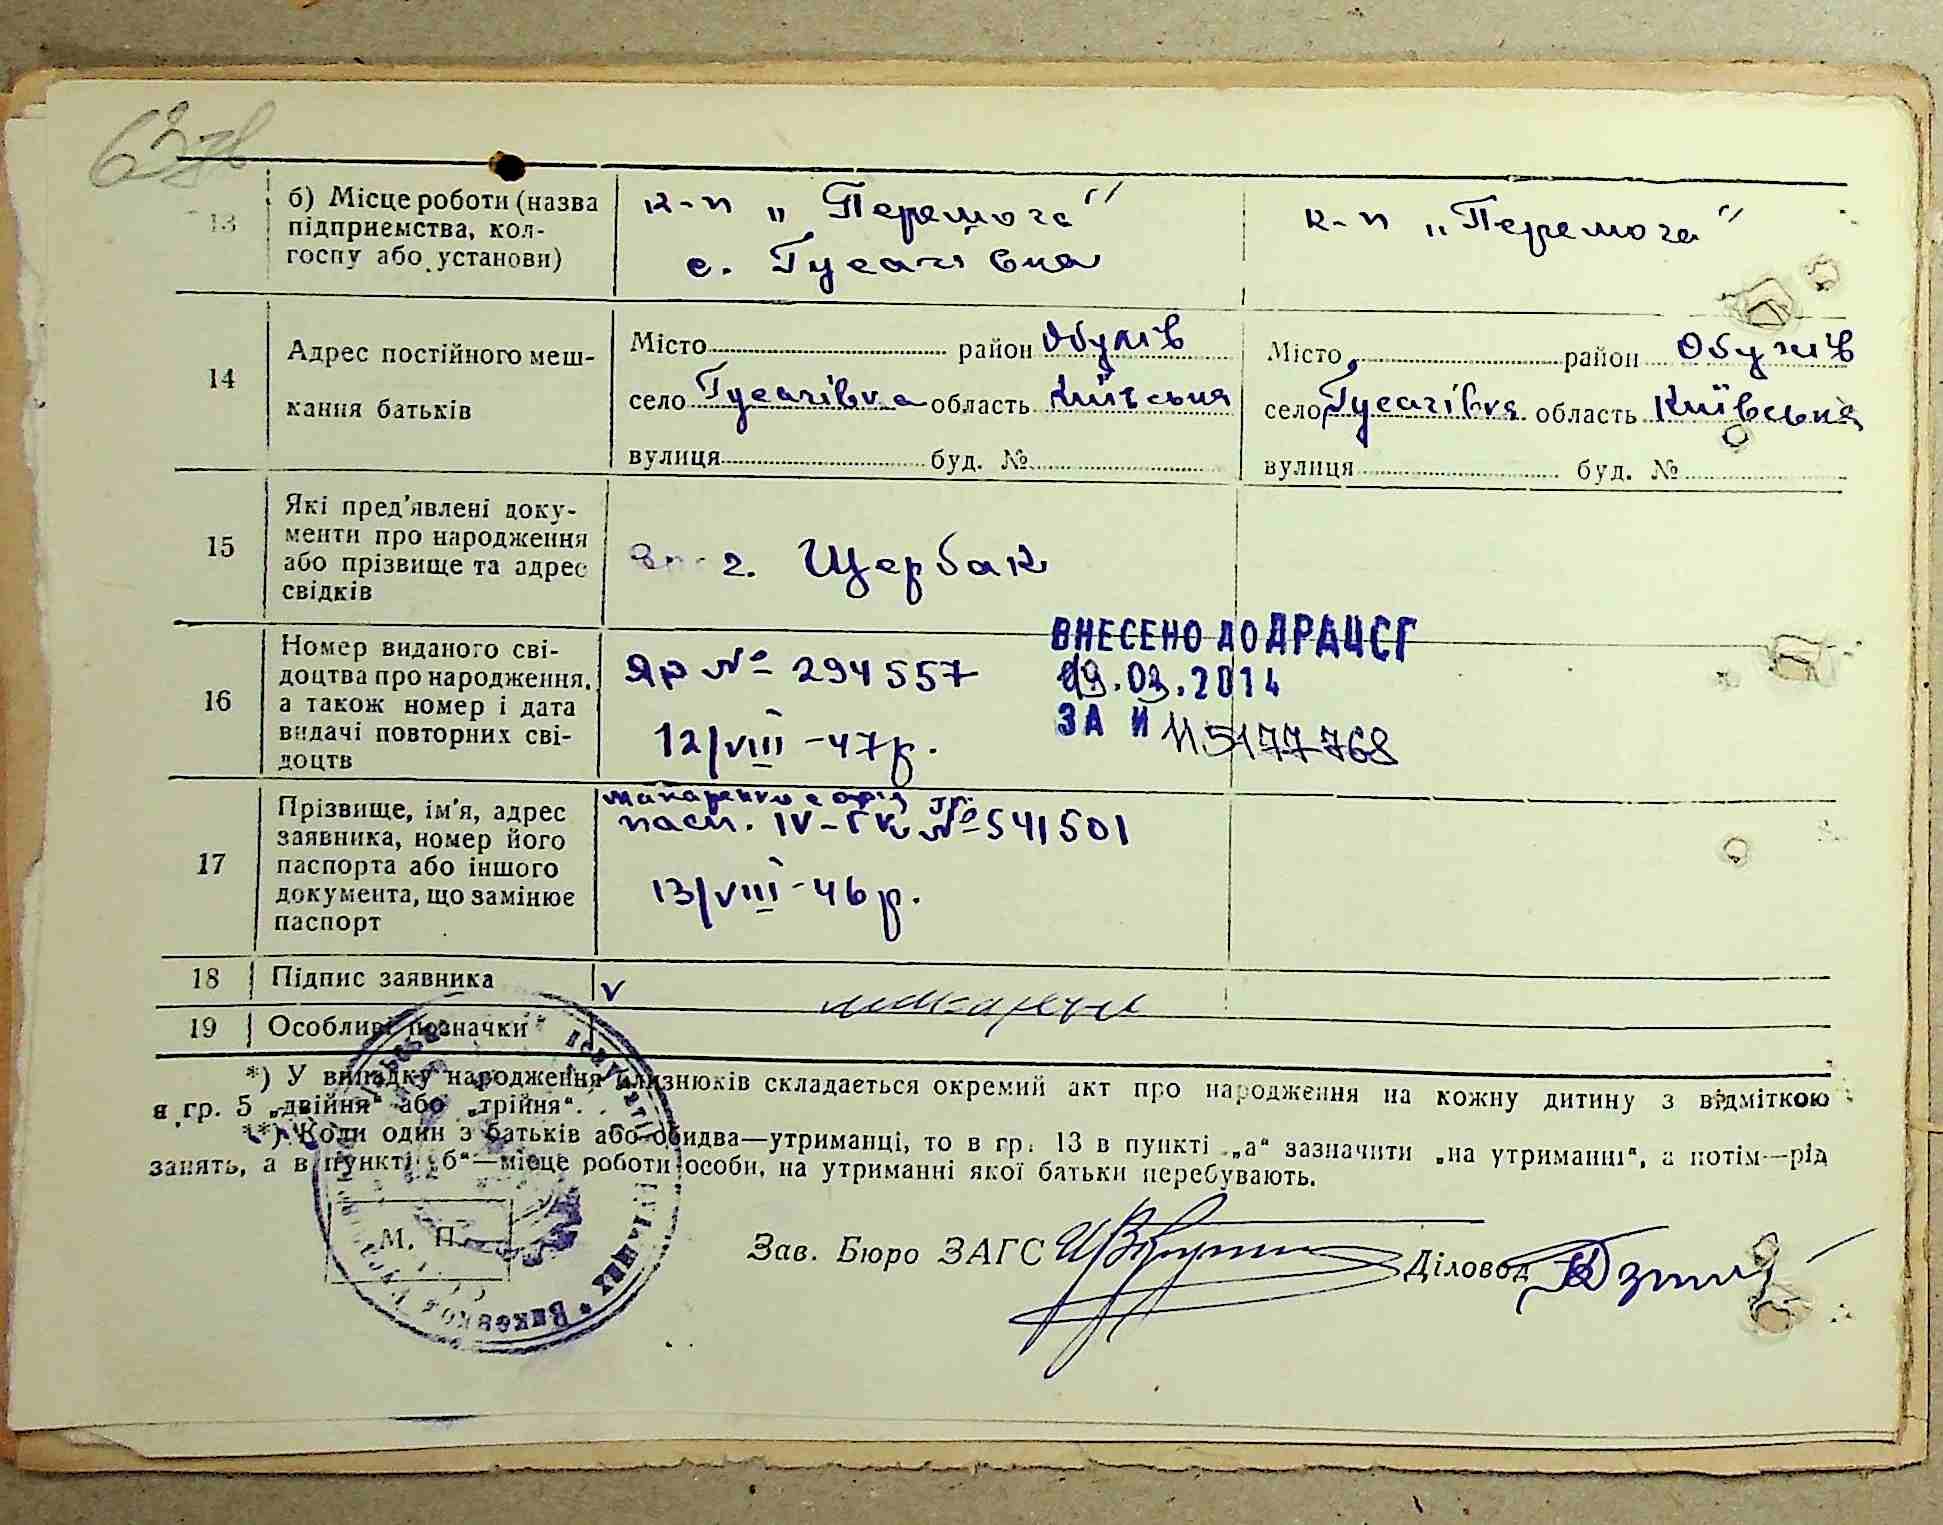 13
б) Місце роботи (назва
підприємства, кол-
госпу або установи)
к-п „Перемога"
с. Гусачівка
к-п „Перемога"
14
Адрес постійного меш-
кання батьків
Місто район Обухів
село Гусачівка область Київська
вулиця буд. №
Місто район Обухів
село Гусачівка область Київська
вулиця буд. №
15
Які пред'явлені доку-
менти про народження
або прізвище та адрес
свідків
г. Щербак
16
Номер виданого сві-
доцтва про народження,
а також номер і дата
видачі повторних сві-
доцтв
ЯР № 294557
12/VIII-47р.
ВНЕСЕНО ДО ДРАЦСГ
03.2014
ЗА № 115177768
17
Прізвище, ім'я, адрес
заявника, номер його
паспорта або іншого
документа, що замінює
паспорт
пасп. № 541501
13/VIII-46р.
18
Підпис заявника
v
19
Особливі позначки
*) У випадку народження близнюків складається окремий акт про народження на кожну дитину з відміткою
в гр. 5 „двійня“ або „трійня“.
**) Коли один з батьків або обидва—утриманці, то в гр. 13 в пункті „а“ зазначити „на утриманні“, а потім—рід
занять, а в пункті „б“—місце роботи особи, на утриманні якої батьки перебувають.
М. П.
Зав. Бюро ЗАГС
Діловод